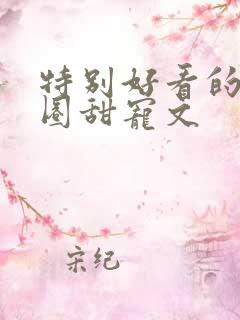 特别好看的
圈甜宠文
宋纪